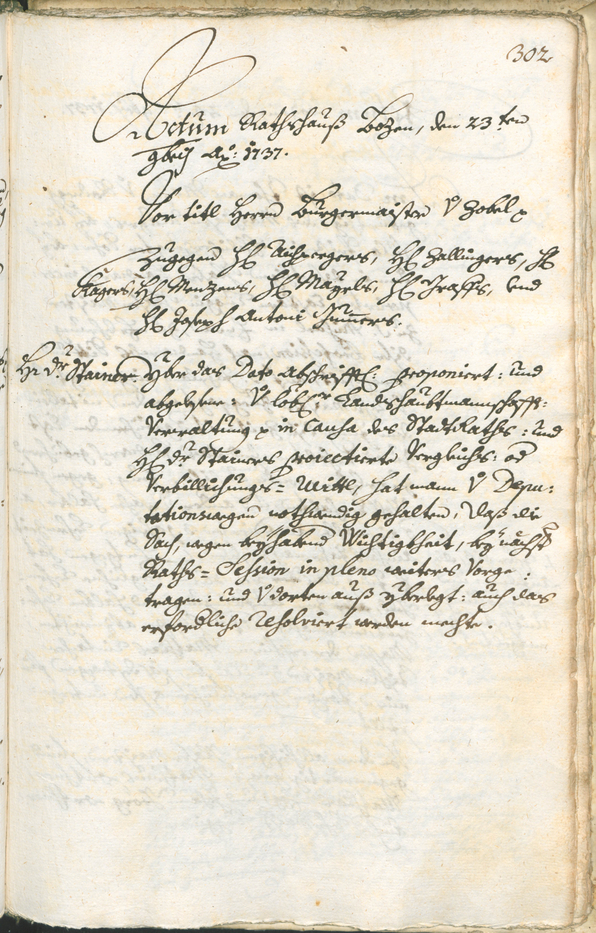 302
Actum Rathshauß Botzen, den 23ten
9bris Ao: 1737.
Vor titl Herrn Burgermaister v Zobel
Zugegen HE Aichpergers, HE Zallingers, HE
Kagers, HE Mentzens, HE Mayrls, HE Graffs, und
HE Joseph Antoni Gummers.
Hr Dr Stainer. Yber das Dato abschrifftl: proponiert: und
abgelesene: V löbl:er Landtshaubtmannschafft:
Verwaltung in Causa des StadtRaths: und
HE Dr Stainers proiectierte Vergleichs: od
Verbillichungs= Mittl, hat mann V Depu:
tationswegen nothwendig gehalten, daß die
Sach, wegen beyhabend Wichtigkheit, bey nechst
Raths= Session in pleno weiters Vorge:
tragen: und V dorten auß yberlegt: auch das
erfordliche resolviert werden mechte.